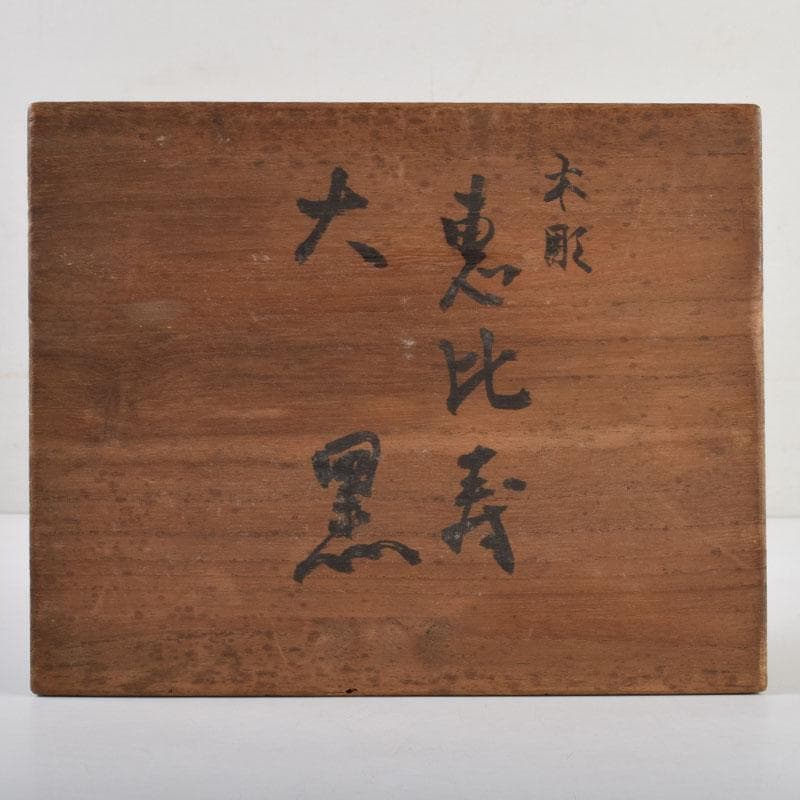 木彫
恵比寿
大黒